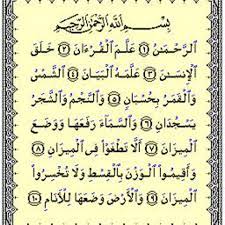 بِسْمِ ٱللَّهِ ٱلرَّحْمَٰنِ ٱلرَّحِيمِ
ٱلرَّحْمَٰنُ ١ عَلَّمَ ٱلْقُرْءَانَ ٢ خَلَقَ
ٱلْإِنسَٰنَ ٣ عَلَّمَهُ ٱلْبَيَانَ ٤ ٱلشَّمْسُ
وَٱلْقَمَرُ بِحُسْبَانٍ ٥ وَٱلنَّجْمُ وَٱلشَّجَرُ
يَسْجُدَانِ ٦ وَٱلسَّمَآءَ رَفَعَهَا وَوَضَعَ
ٱلْمِيزَانَ ٧ أَلَّا تَطْغَوْا۟ فِى ٱلْمِيزَانِ ٨
وَأَقِيمُوا۟ ٱلْوَزْنَ بِٱلْقِسْطِ وَلَا تُخْسِرُوا۟
ٱلْمِيزَانَ ٩ وَٱلْأَرْضَ وَضَعَهَا لِلْأَنَامِ ١٠